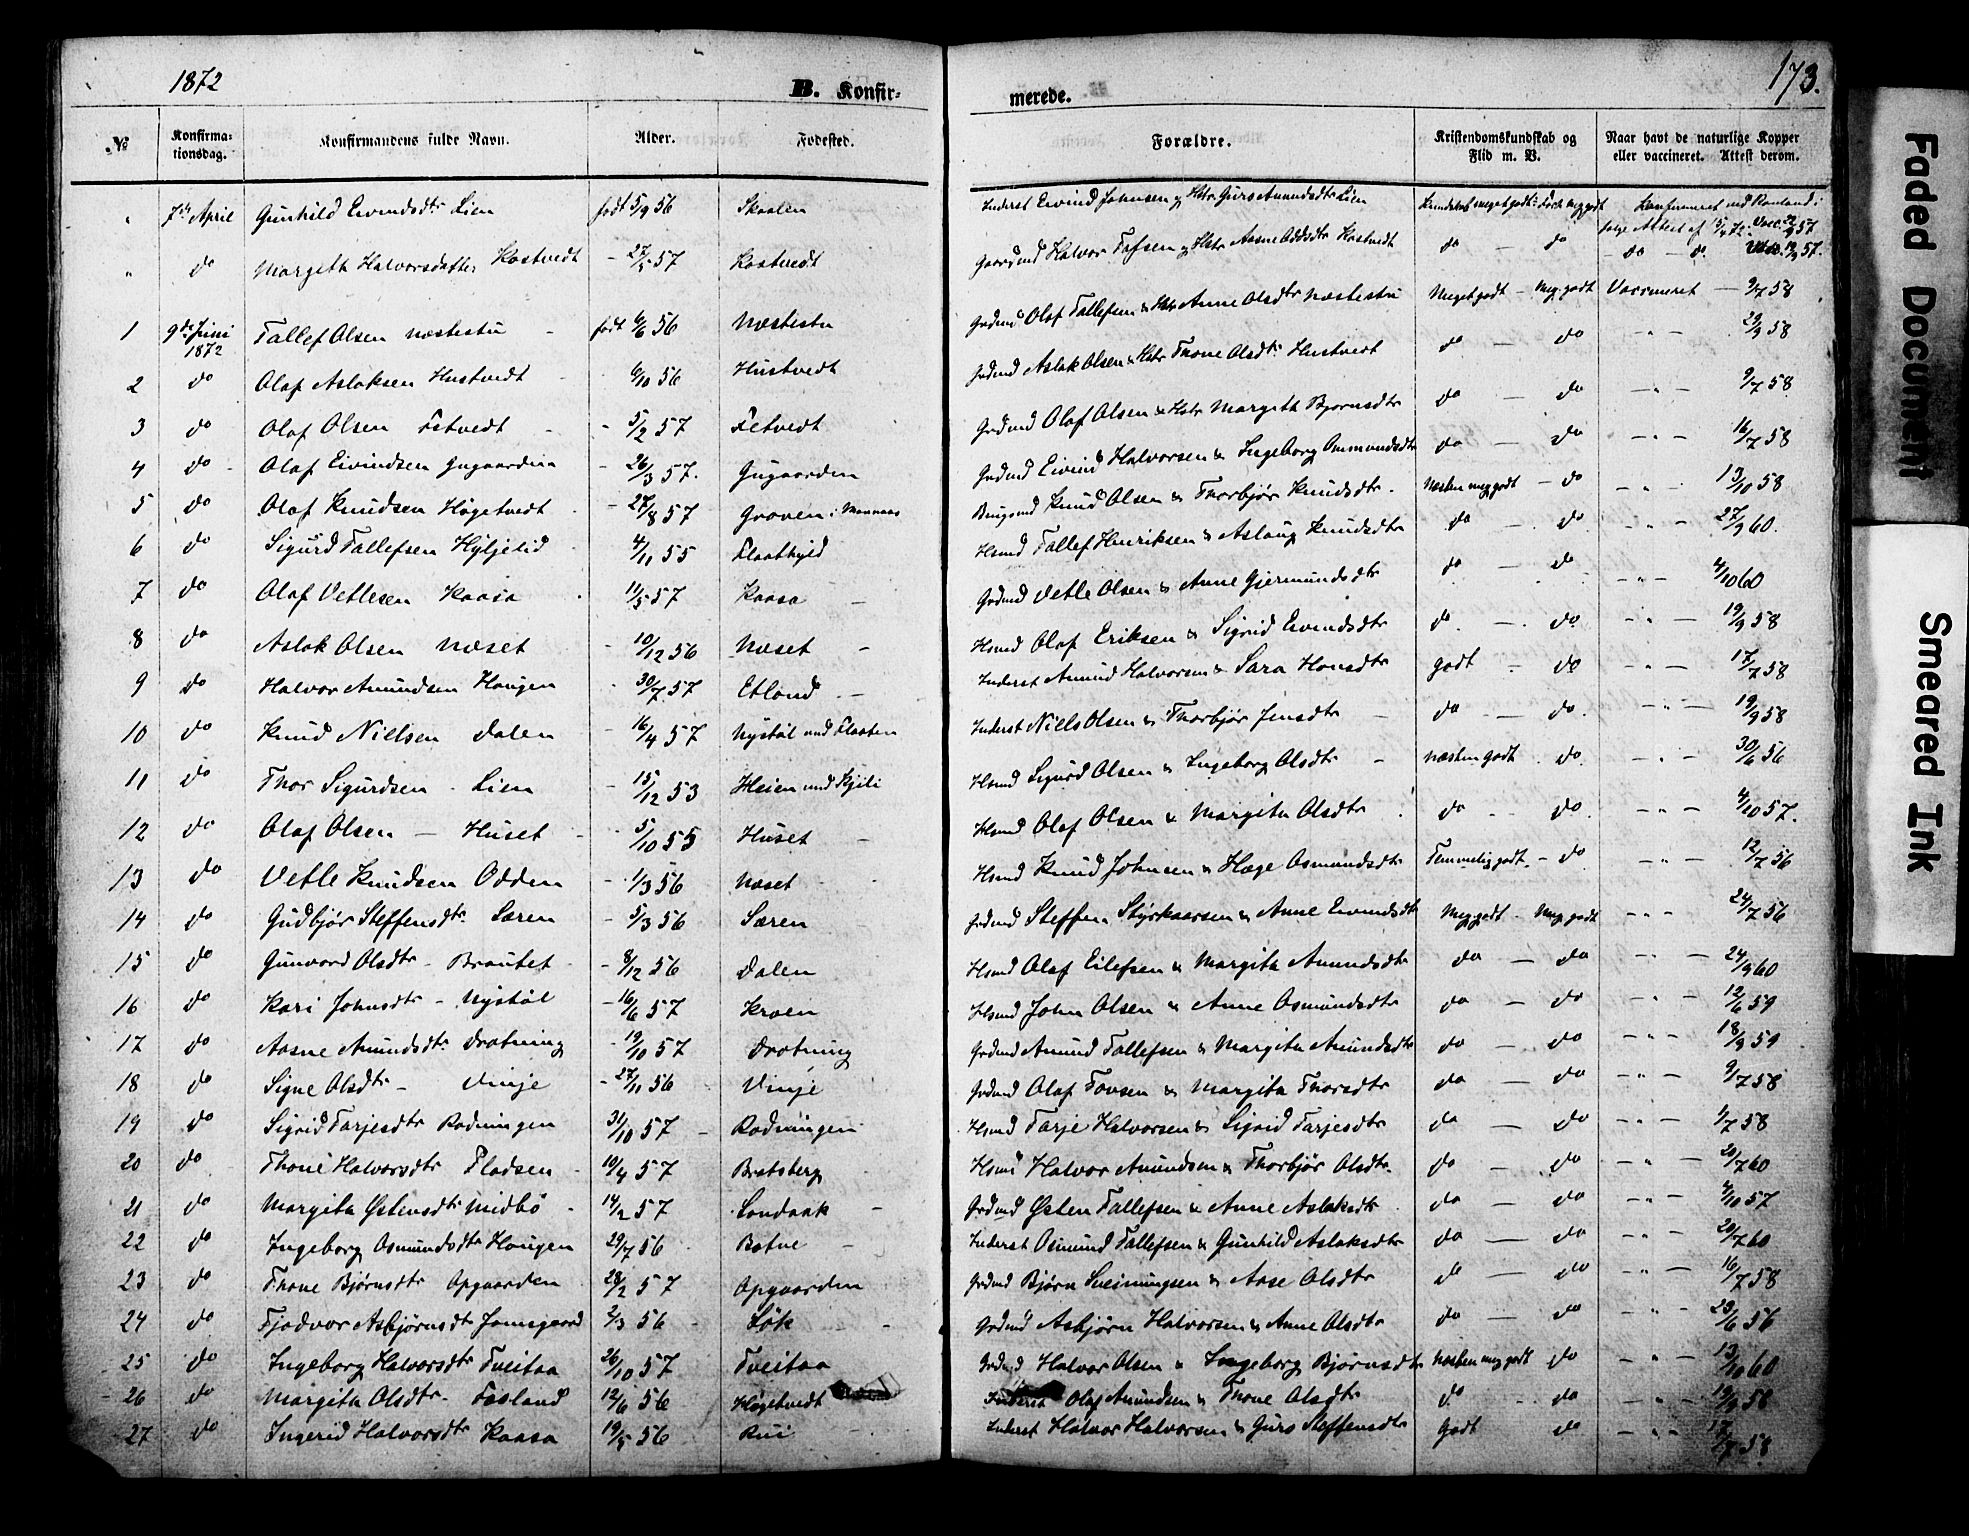 1872
B. Konfir-
merede.
173.
№ Konfirma-
tionsdag. Konfirmandens fulde Navn. Alder. Fødested. Forældre. Kristendomskundskab og
Flid m. V. Naar havt de naturlige Kopper
eller vaccineret. Attest derom.
" 7de April Gunhild Eivindsdtr Lien født 5/9 56 Skaalen Inderst Eivind Johnsen og Hstr Guro Amundsdtr Lien
" do Margith Halvorsdatter Kostvedt - 27/5 57 Kostvedt Gaardmd Halvor Tofsen og Hstr Aasne Oddsdtr Kostvedt do - do - do - do. Vacc. 57.
1 9de Juni
1872 Tallef Olsen Næstestu - født 6/6 56 Næstestu Grdmd Olaf Tallefsen & Hstr Anne Olsdtr Næstestu Meget godt - Meg. godt Vaccineret - 9/7 58
2 do Olaf Aslaksen Hustvedt - 6/10 56 Hustvedt Grdmd Aslak Olsen & Hstr Thone Olsdtr Hustvedt do - do - " - 29/9 58
3 do Olaf Olsen Fetvedt - - 5/2 57 Fetvedt Grdmd Olaf Olsen & Hstr Margith Bjornsdtr do - do - " - 9/7 58
4 do - Olaf Eivindsen Gugaarden - 26/3 57. Gugaarden Grdmd Eivind Halvorsen & Ingeborg Ommundsdtr do - do - " - 16/7 58
5 do Olaf Knudsen Høgetvedt - 27/8 57 Groven i Mannaas Brugsmd Knud Olsen & Thorbjør Knudsdtr. Næsten meg godt - do - " - 13/10 58
6 do Sigurd Tallefsen Hyljelid 4/11 55 Flaathyld Hsmd Tallef Henriksen & Aslaug Knudsdtr do - do - " - 27/9 60.
7 do Olaf Vetlesen Kaasa 11/5 57 Kaasa - Grdmd Vetle Olsen & Anne Gjermundsdtr do - do - " - 4/10 60
8 do Aslak Olsen Næset - 10/12 56 Næset - Hsmd Olaf Eriksen & Sigrid Eivindsdtr do - do - " - 19/9 58
9 do Halvor Amundsen Haugen 30/7 57 Etland - Inderst Amund Halvorsen & Sara Hansdtr godt - do - " - 17/7 58
10 do Knud Nielsen Dalen - 16/4 57 Nystøl und Flaaten Inderst Niels Olsen & Thorbjør Jensdtr - do - do. - " - 19/9 58
11 do Thor Sigurdsen - Lien - 15/12 53 Heien und Kjeli Hsmd Sigurd Olsen & Ingeborg Olsdtr - næsten godt - do - " - 30/6 56
12 do Olaf Olsen - Huset - 5/10 55 Huset - Hsmd Olaf Olsen & Margita Olsdtr do - do. - " - 4/10 57.
13 do Vetle Knudsen Odden - 1/3 56 Næset Hsmd Knud Johnsen & Hæge Osmundsdtr Temmelig godt. - do - " - 12/7 56
14 do Gudbjør Steffensdtr Særen - 5/3 56 Særen Grdmd Steffen Styrkaarsen & Anne Eivindsdtr Meg godt - Meg. godt - " - 24/7 56
15 do Gunvord Olsdtr - Brautet - 8/12 56 Dalen Hsmd Olaf Eilefsen & Margita Amundsdtr do - do - " - 24/9 60
16 do Kari Johnsdtr - Nystøl - 16/6 57 Kroen Hsmd John Olsen & Anne Osmundsdtr do - do - " - 12/6 59
17 do Aasne Amundsdtr Drotning - 19/10 57 Drotning Grdmd Amund Tallefsen & Margita Amundsdtr do - do - " - 18/9 59
18 do Signe Olsdtr - Vinje - 27/11 56 Vinje Grdmd Olaf Tovsen & Margita Thorsdtr do - do - " - 9/7 58
19 do Sigrid Tarjesdtr Rodningen 31/10 57 - Rodningen Hsmd Tarje Halvorsen & Sigrid Tarjesdtr do - do - " - 1/7 58
20 do Thone Halvorsdtr Fladsen - 10/4 57 Bratsberg Hsmd Halvor Amundsen & Thorbjør Olsdtr. do - do - " - 20/7 60
21 do Margita Østensdtr Midbø - 14/2 57 Sondaak - Grdmd Østen Tallefsen & Anne Aslaksdtr do - do - " - 4/10 57
22 do Ingeborg Osmundsdtr Haugen 29/7 56 Botne - Inderst Osmund Tallefsen & Gunhild Aslaksdtr do - do - " - 20/7 60
23 do Thone Bjørnsdtr Opgaarden 28/2 57 Opgaarden Grdmd Bjørn Sveinungsen & Aase Olsdtr do - do - " - 16/7 58
24 do Fjodvor Asbjørnsdtr Jamsgaard 2/3 56 - Løk - Grdmd Asbjørn Halvorsen & Anne Olsdtr do - do - " - 23/6 56
25 do Ingeborg Halvorsdtr Tveitaa 26/10 57 Tveitaa Grdmd Halvor Olsen & Ingeborg Bjørnsdtr Næsten meg godt do - " - 13/10 60
26 do Margita Olsdtr - Fosland 12/6 56 Høgetvedt Inderst Olaf Amundsen & Thone Olsdtr do - do - " - 19/9 58
27 do Ingerid Halvorsdtr Kaasa 19/5 56 Rui Inderst Halvor Halvorsen & Guro Steffensdtr Godt do - " - 17/7 58
Faded Document
Smeared Ink